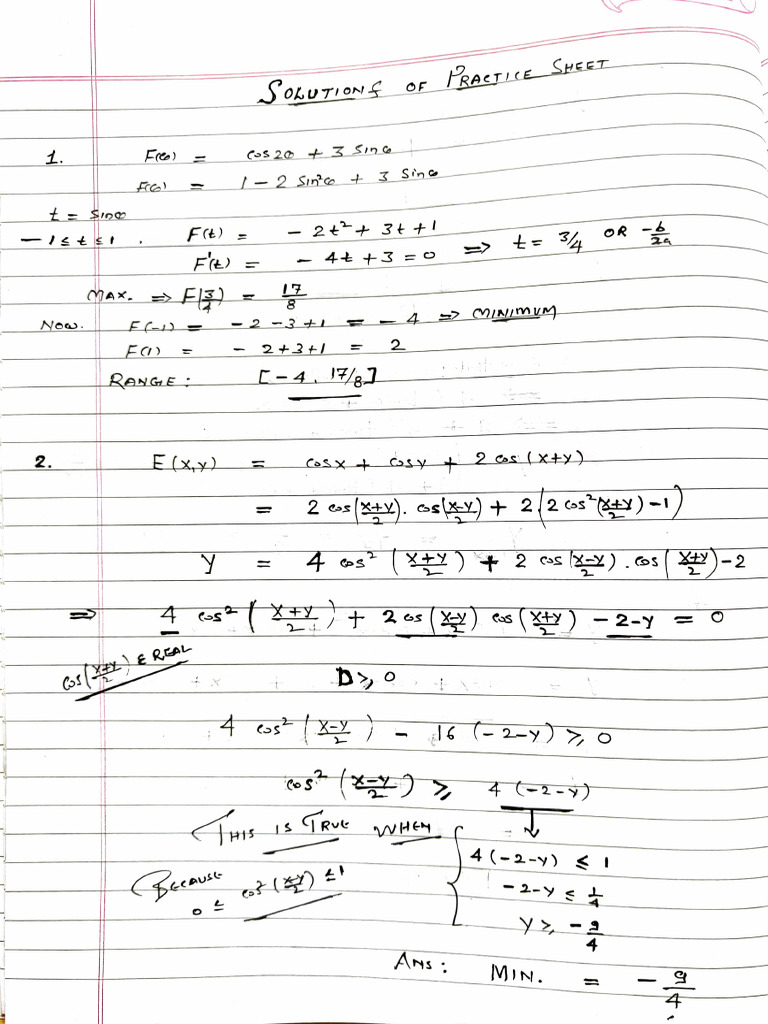 SOLUTIONS OF PRACTICE SHEET
1. F(θ) = cos2θ + 3 sinθ
F(θ) = 1 - 2 sin²θ + 3 sinθ
t = sinθ
-1 ≤ t ≤ 1. F(t) = - 2t² + 3t + 1
F'(t) = - 4t + 3 = 0 ⇒ t = 3/4 OR -b/2a
MAX. ⇒ F(3/4) = 17/8
NOW. F(-1) = -2 -3 +1 = -4 ⇒ MINIMUM
F(1) = - 2+3+1 = 2
RANGE : [-4, 17/8]
2. E(x,y) = cosx + cosy + 2 cos (x+y)
= 2 cos(x+y/2). cos(x-y/2) + 2(2 cos²(x+y/2) -1)
Y = 4 cos² (x+y/2) + 2 cos(x-y/2).cos(x+y/2)-2
⇒ 4 cos² (x+y/2) + 2cos(x-y/2) cos(x+y/2) -2-y = 0
cos(x+y/2) ∈ REAL
D ≥ 0
4 cos² (x-y/2) - 16 (-2-y) ≥ 0
cos² (x-y/2) ≥ 4 (-2-y)
THIS IS TRUE WHEN
4(-2-y) ≤ 1
BECAUSE
0 ≤ cos² (x-y/2) ≤ 1
-2-y ≤ 1/4
y ≥ -9/4
ANS : MIN. = -9/4